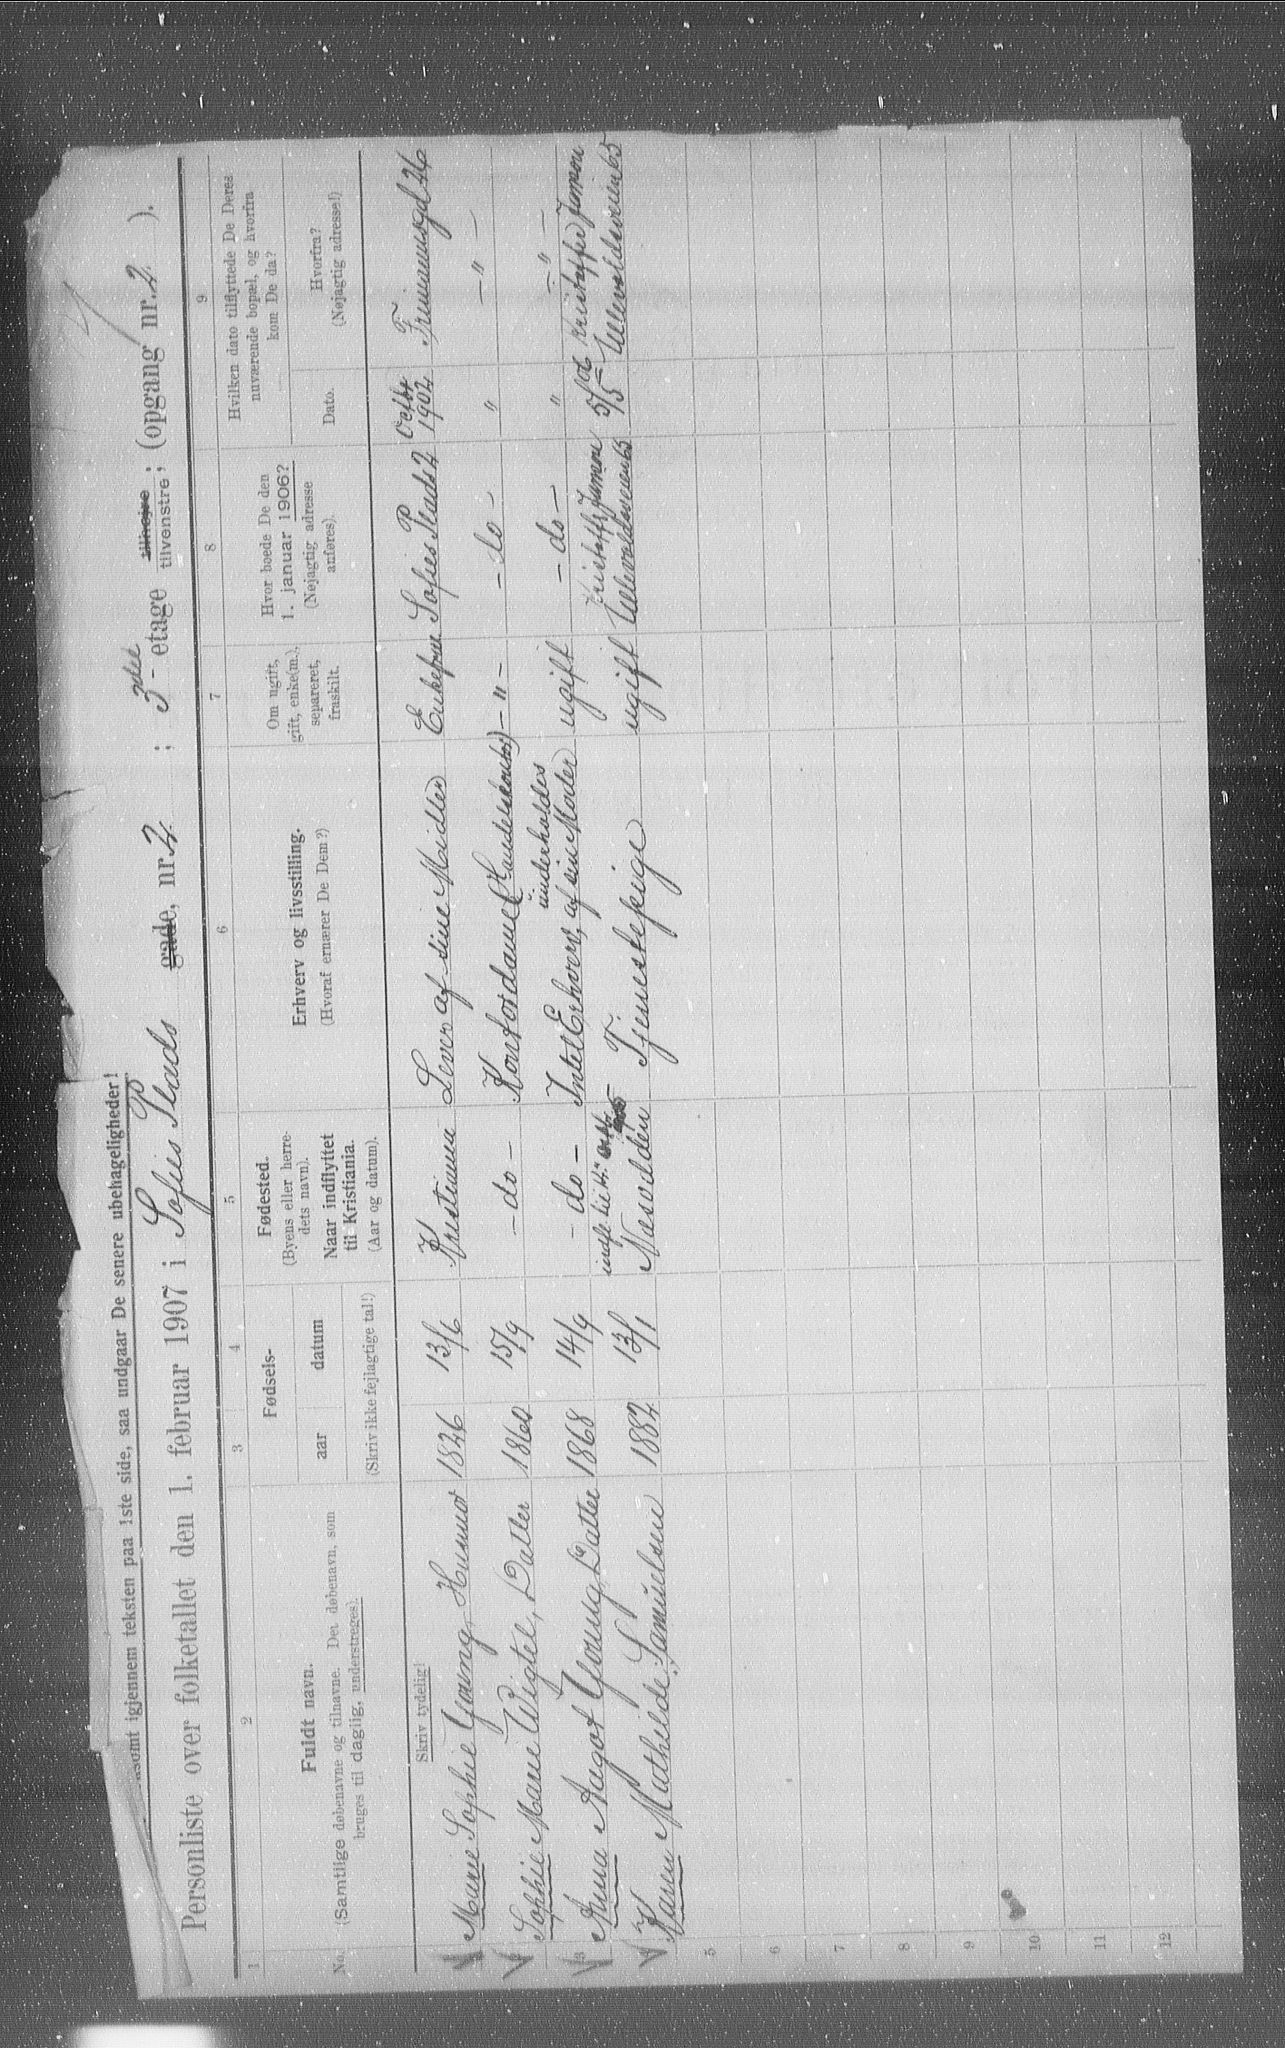 somt igjennem teksten paa 1ste side, saa undgaar De senere ubehageligheder!
Personliste over folketallet den 1. februar 1907 i Sofies Plads gade, nr. 2 ; 3die etage tilhøjre tilvenstre; (opgang nr. 2 ).
1 2 3 4 5 6 7 8 9
No.
Fuldt navn.
(Samtlige døbenavne og tilnavne. Det døbenavn, som
bruges til daglig, understreges).
Fødsels-
aar datum
(Skriv ikke fejlagtige tal!)
Fødested.
(Byens eller herre-
dets navn).
Naar indflyttet
til Kristiania.
(Aar og datum).
Erhverv og livsstilling.
(Hvoraf ernærer De Dem?)
Om ugift,
gift, enke(m.),
separeret,
fraskilt.
Hvor boede De den
1. januar 1906?
(Nøjagtig adresse
anføres).
Hvilken dato tilflyttede De Deres
nuværende bopæl, og hvorfra
kom De da?
Dato.
Hvorfra?
(Nøjagtig adresse!)
Skriv tydelig!
Marie Sophie Young, Husmor 1826 13/6 Kristiania Lever af sine Midler Enkefru Sofies Plads 2 Octbr 1902 Frimannsgd 26
Sophie Marie Wigtel, Datter 1860 15/9 - do - Kontordame (Handelskontor) - " - - do - " - " -
3 Anna Aagot Young, Datter 1868 14/9 - do - Intet Erhverv, underholdes af sin Moder ugift - do - " - " -
Karen Mathilde Samuelsen 1882 13/1 Næsodden Tjenestepige ugift Ullevoldsveien 65 5/5 06 Kristoffer Jensen Ullevoldsveien 65
5
6
7
8
9
10
11
12